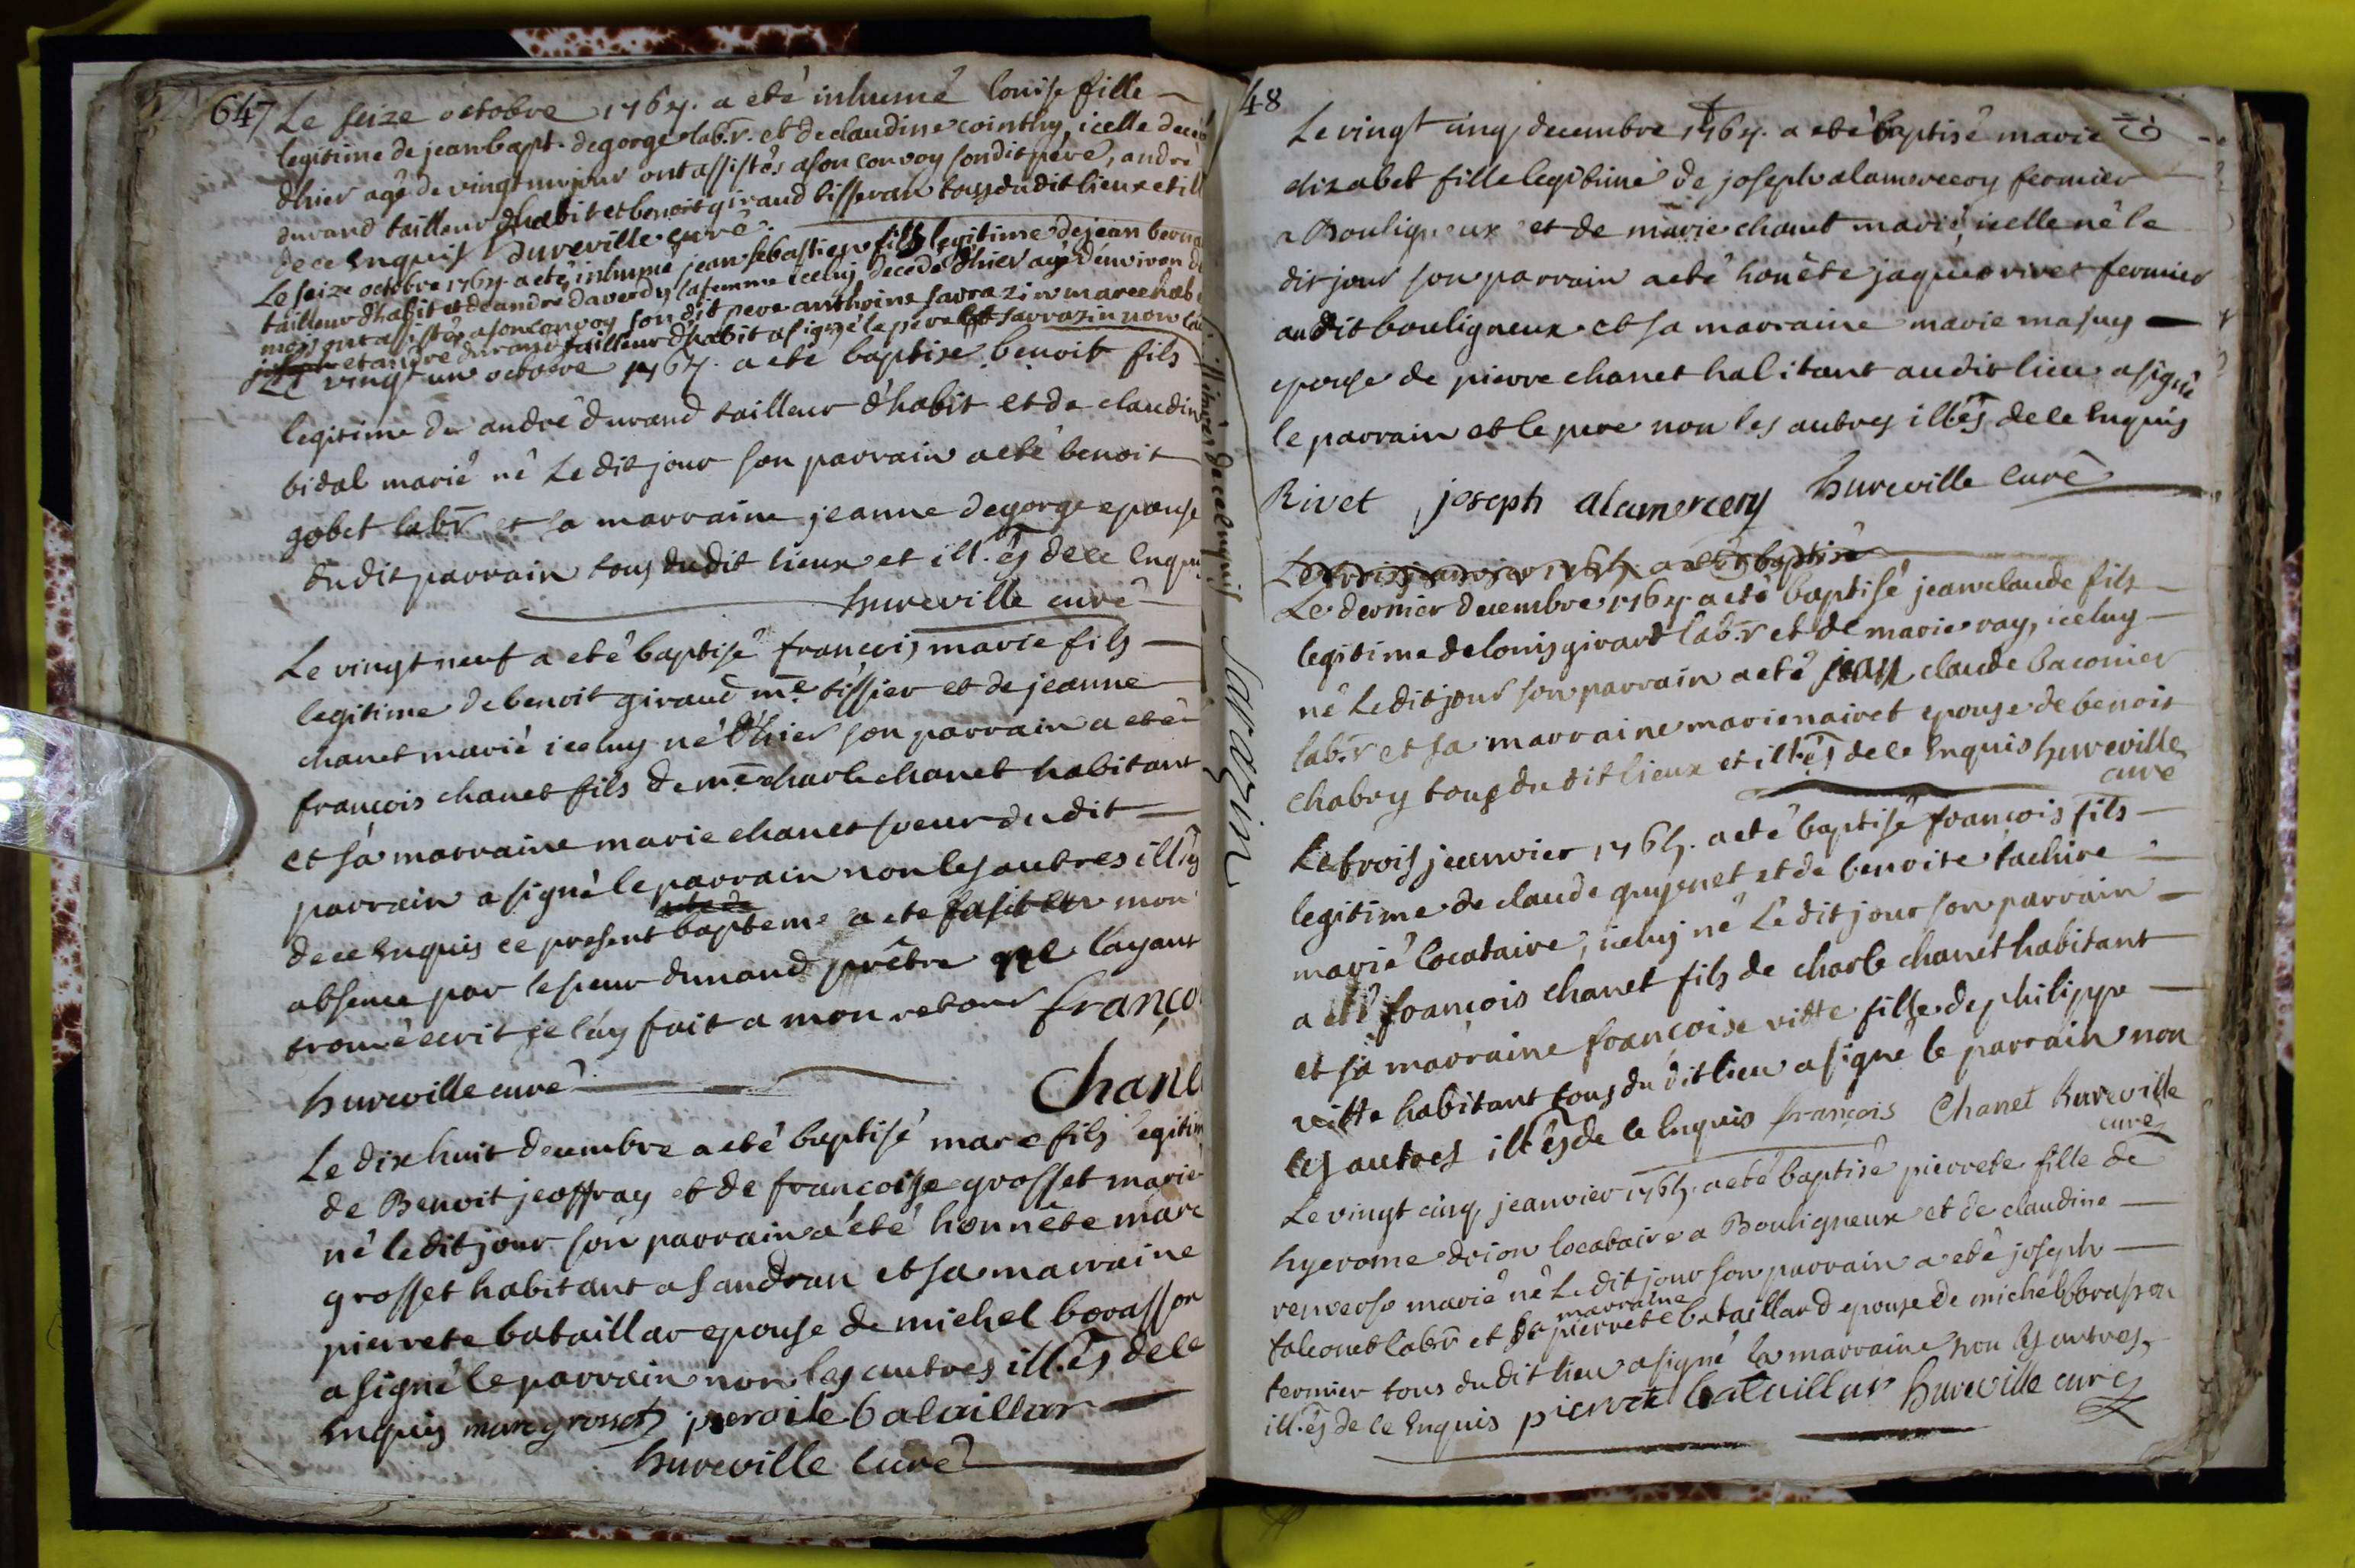 647
Le seize octobre 1764. a eté inhumé louise fille
legitime de jean bapt. degorge lab.r. et de claudine cointhy, icelle decedé
dhier agé de vingt un jour ont assistés a son convoy sondit pere, andré
durand tailleur dhabit et benoit giraud tisseran tous dudit lieux et ill
de ce Enquis hureville curé.
Le seize octobre 1764 a eté inhumé jean sebastien fils legitime de jean
tailleur d'habit et de andré daverdy sa femme iceluy decedé dhier agé d'environ
mois ont assistés a son convoy son dit pere anthoine sarrazin marechal
et andré durand tailleur d'habit a signé le pere et sarrazin non
illiterés de ce enquis
sarrazin
Le vingt un octobre 1764. a eté baptisé benoit fils
legitime de andré durand tailleur d'habit et de claudine
bidal marié né Le dit jour son parrain a eté benoit
gobet labr et sa marraine jeanne degorge epouse
du dit parrain tous dudit lieux et ill.és de ce Enquis
hureville curé
Le vingt neuf a eté baptisé françois marie fils
legitime de benoit giraud me tissier et de jeanne
chanet marié iceluy né d'hier son parrain a eté
françois chanet fils de me charle chanet habitant
et sa marraine marie chanet soeur du dit
parrain a signé le parrain non les autres illés
de ce Enquis ce present bapteme a eté fait en mon
absence par le sieur dunand prêtre ne l'ayant
trouvé ecrit je l'ay fait a mon retour franço
hureville curé Chane
Le dix huit decembre a eté baptisé marc fils legitim
de Benoit jeoffray et de francoise grosset marié
né le dit jour son parrain a eté honnête marc
grosset habitant a sandran et sa marraine
pierrete bataillar epouse de michel borasson
a signé le parrain non les autres ill.és de ce
Enquis marc grosset pieraite bataillar
hureville Curé
48
Le vingt cinq decembre 1764. a eté baptisé marie
elizabet fille legitime de joseph alamercery fermier
a Bouligneux et de marie chanet marié, icelle né le
dit jour son parrain a eté honête jaques rivet fermier
au dit bouligneux et sa marraine marie masuy
epouse de pierre chanet habitant au dit lieu a signé
le parrain et le pere non les autres illés de ce Enquis
Rivet joseph alamercery hureville Curé
Le trois janvier 1765. a eté baptisé
Le dernier decembre 1764. a eté baptisé jean claude fils
legitime de louis girard lab.r et de marie ray, iceluy
né Le dit jour son parrain a eté jean claude baconier
lab.r et sa marraine marie nairet epouse de benoit
chabry tous du dit lieux et illés de ce Enquis hureville
curé
Le trois jeanvier 1765. a eté baptisé françois fils
legitime de claude guyenet et de benoite tachire
marié locataire, iceluy né Le dit jour son parrain
a eté françois chanet fils de charle chanet habitant
et sa marraine françoise vitte fille de philippe
vitte habitant tous du dit lieu a signé le parrain non
les autres illés de ce Enquis françois Chanet hureville
curé
Le vingt cinq jeanvier 1765. a eté baptisé pierrete fille de
hyerome drion locataire a Bouligneux et de claudine
renverse marié né Le dit jour son parrain a eté joseph
falconet labr et sa marraine pierrete bataillard epouse de michel borasson
fermier tous du dit lieu a signé la marraine non les autres
ill.és de ce Enquis pierrete bataillar hureville curé